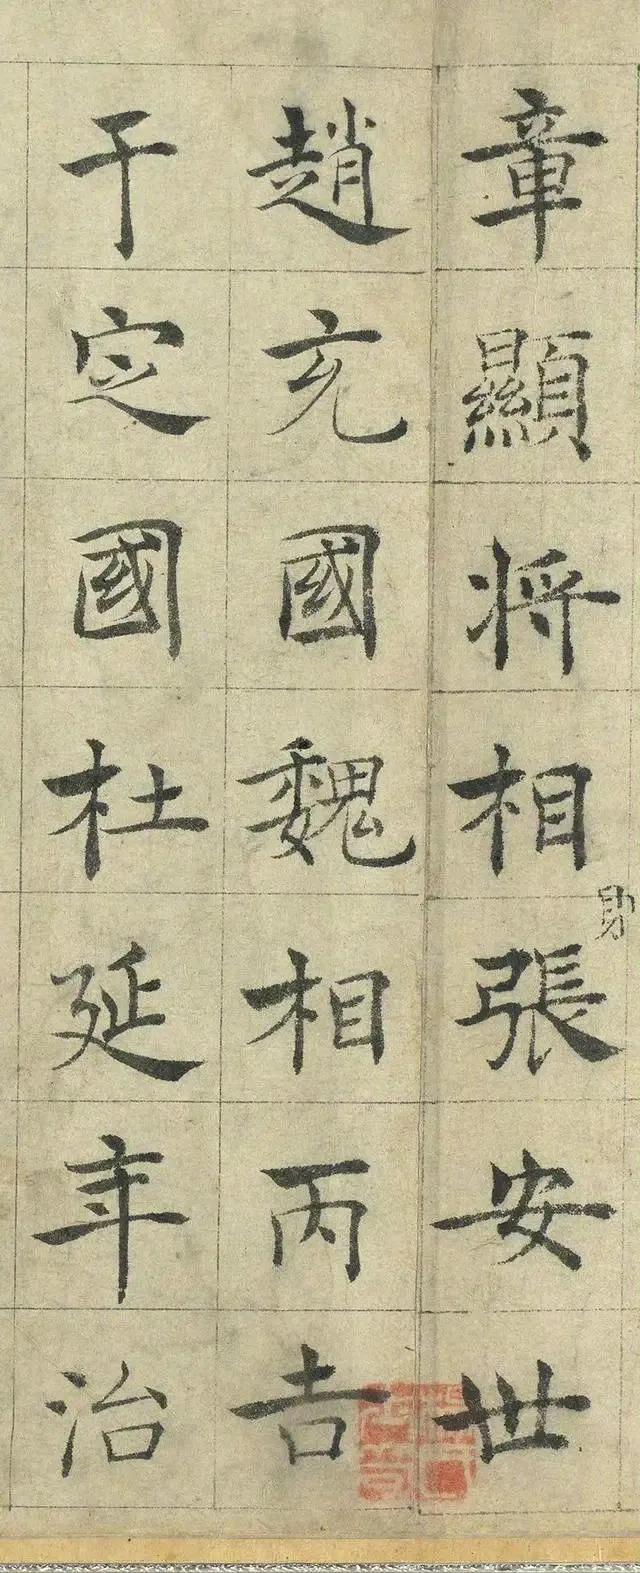 章顯将相則張安世
趙充國魏相丙吉
于定國杜延年治